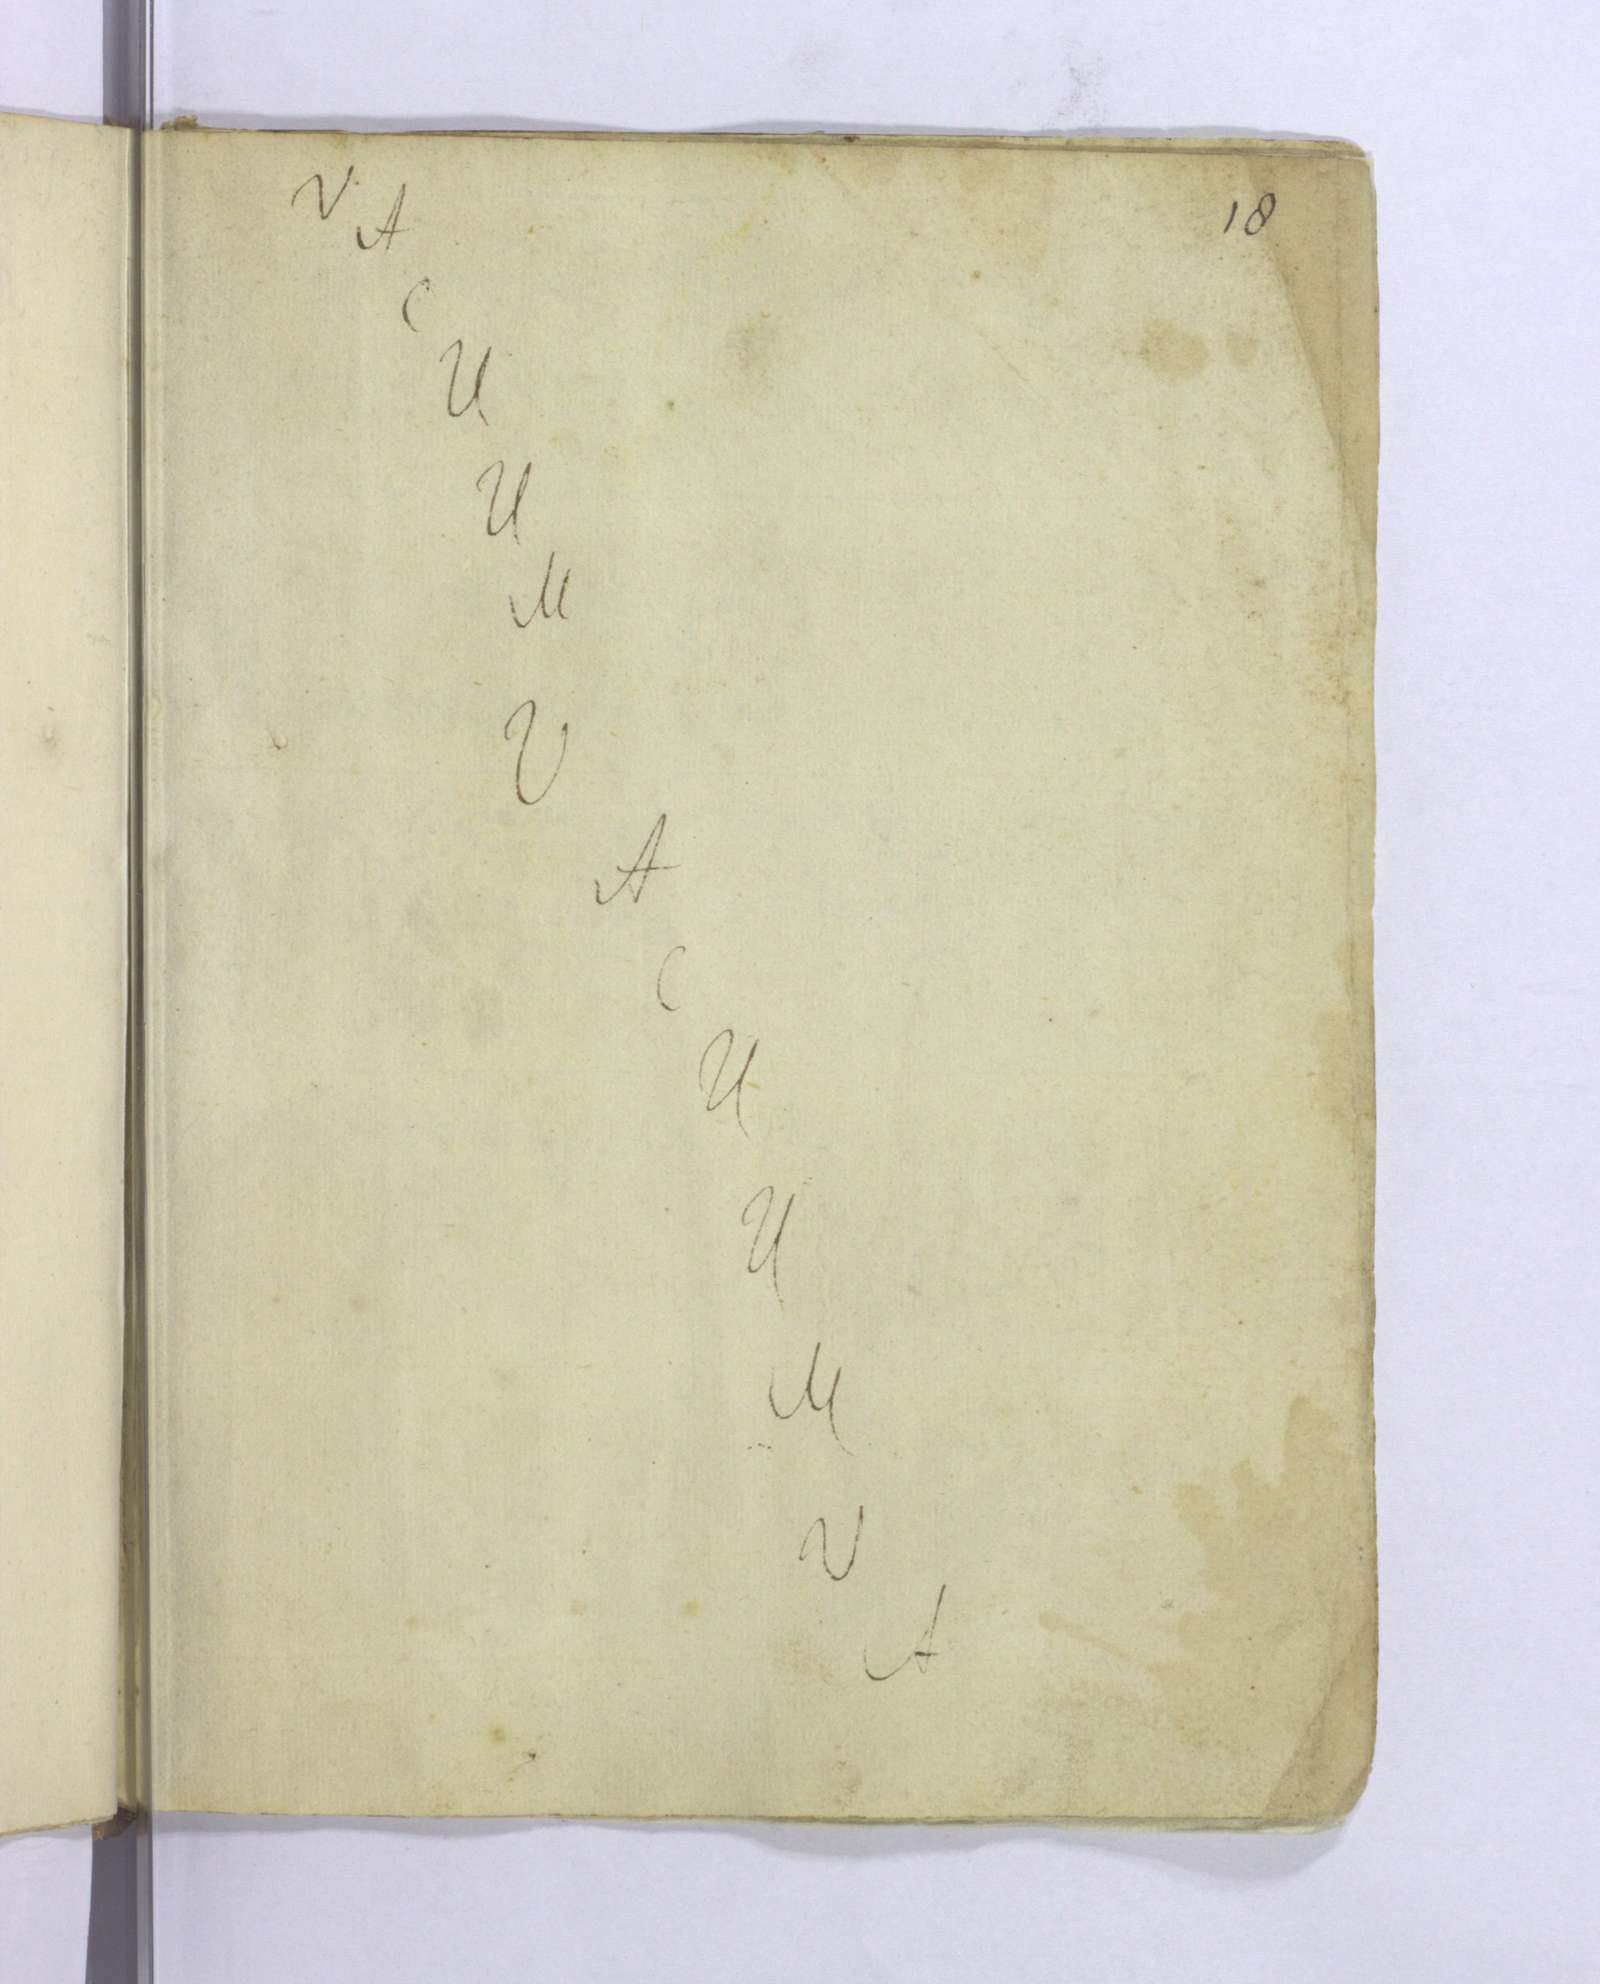 18
V
A
C
U
U
M
V
A
C
U
U
M
V
A